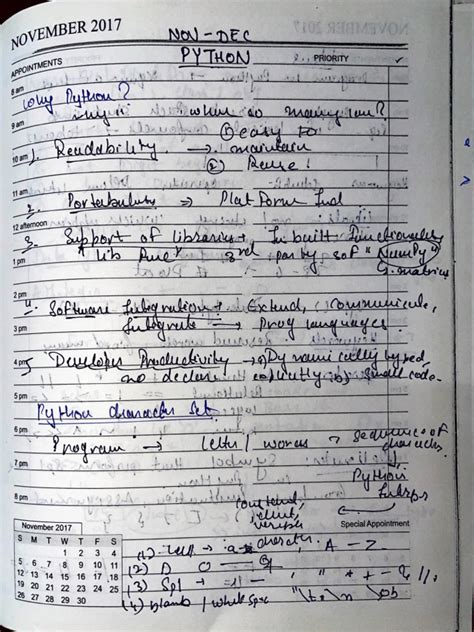 NOVEMBER 2017
NOV-DEC
PYTHON
APPOINTMENTS
PRIORITY
8 am
Why Python?
9 am
why is when so many lan?
① easy to
10 am 1. Readability → maintain
② Reuse!
11 am
2. Portability ⇒ Platform Ind
12 afternoon
3. Support of libraries + In built Functionality
1 pm
3rd party sof "NumPy"
2 pm
4. Software Integration + Extend, communicate,
3 pm
Integrate → Prog languages.
4 pm
5. Developer Productivity → a) Dynamically typed
no declare explicitly b) small code.
5 pm
Python character Set:
6 pm
Program → letters / words sequence of
characters.
7 pm
Python
Interps
8 pm
November 2017
Special Appointment
S M T W T F S
1 2 3 4
5 6 7 8 9 10 11
12 13 14 15 16 17 18
19 20 21 22 23 24 25
26 27 28 29 30
(1) Lett → a-z A-Z
character.
(2) D 0-9
(3) Spl
(4) blank / white spce "\t \n \b